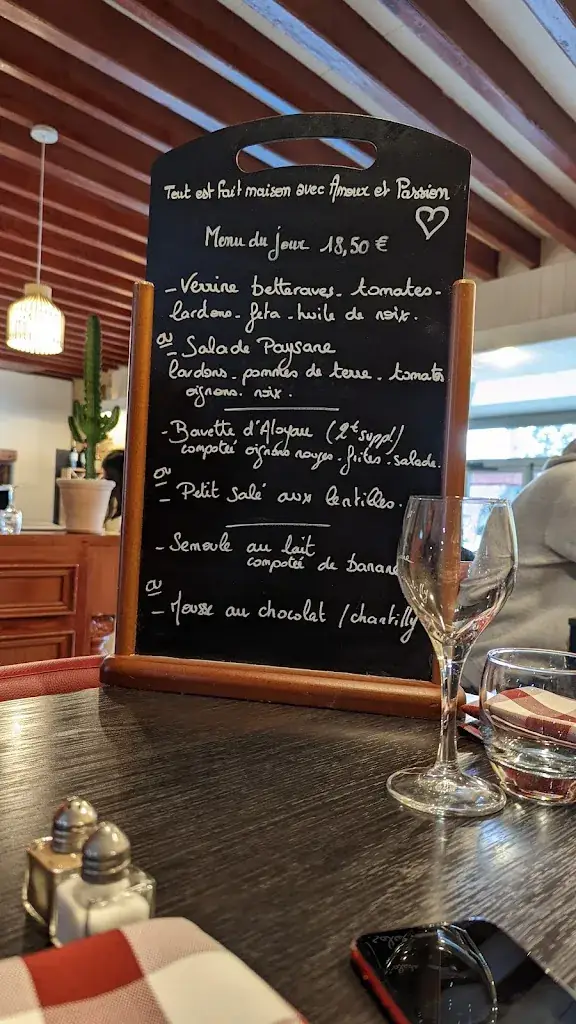 Tout est fait maison avec Amour et Passion
Menu du jour 18,50 €
- Verrine betteraves - tomates -
lardons - feta - huile de noix.
ou
- Salade Paysane
lardons - pommes de terre - tomates
oignons - noix.
- Bavette d'Aloyau (2€ suppl)
compotée oignons rouges - frites - salade.
ou
- Petit salé aux lentilles.
- Semoule au lait
compotée de banane
ou
- Mousse au chocolat / chantilly